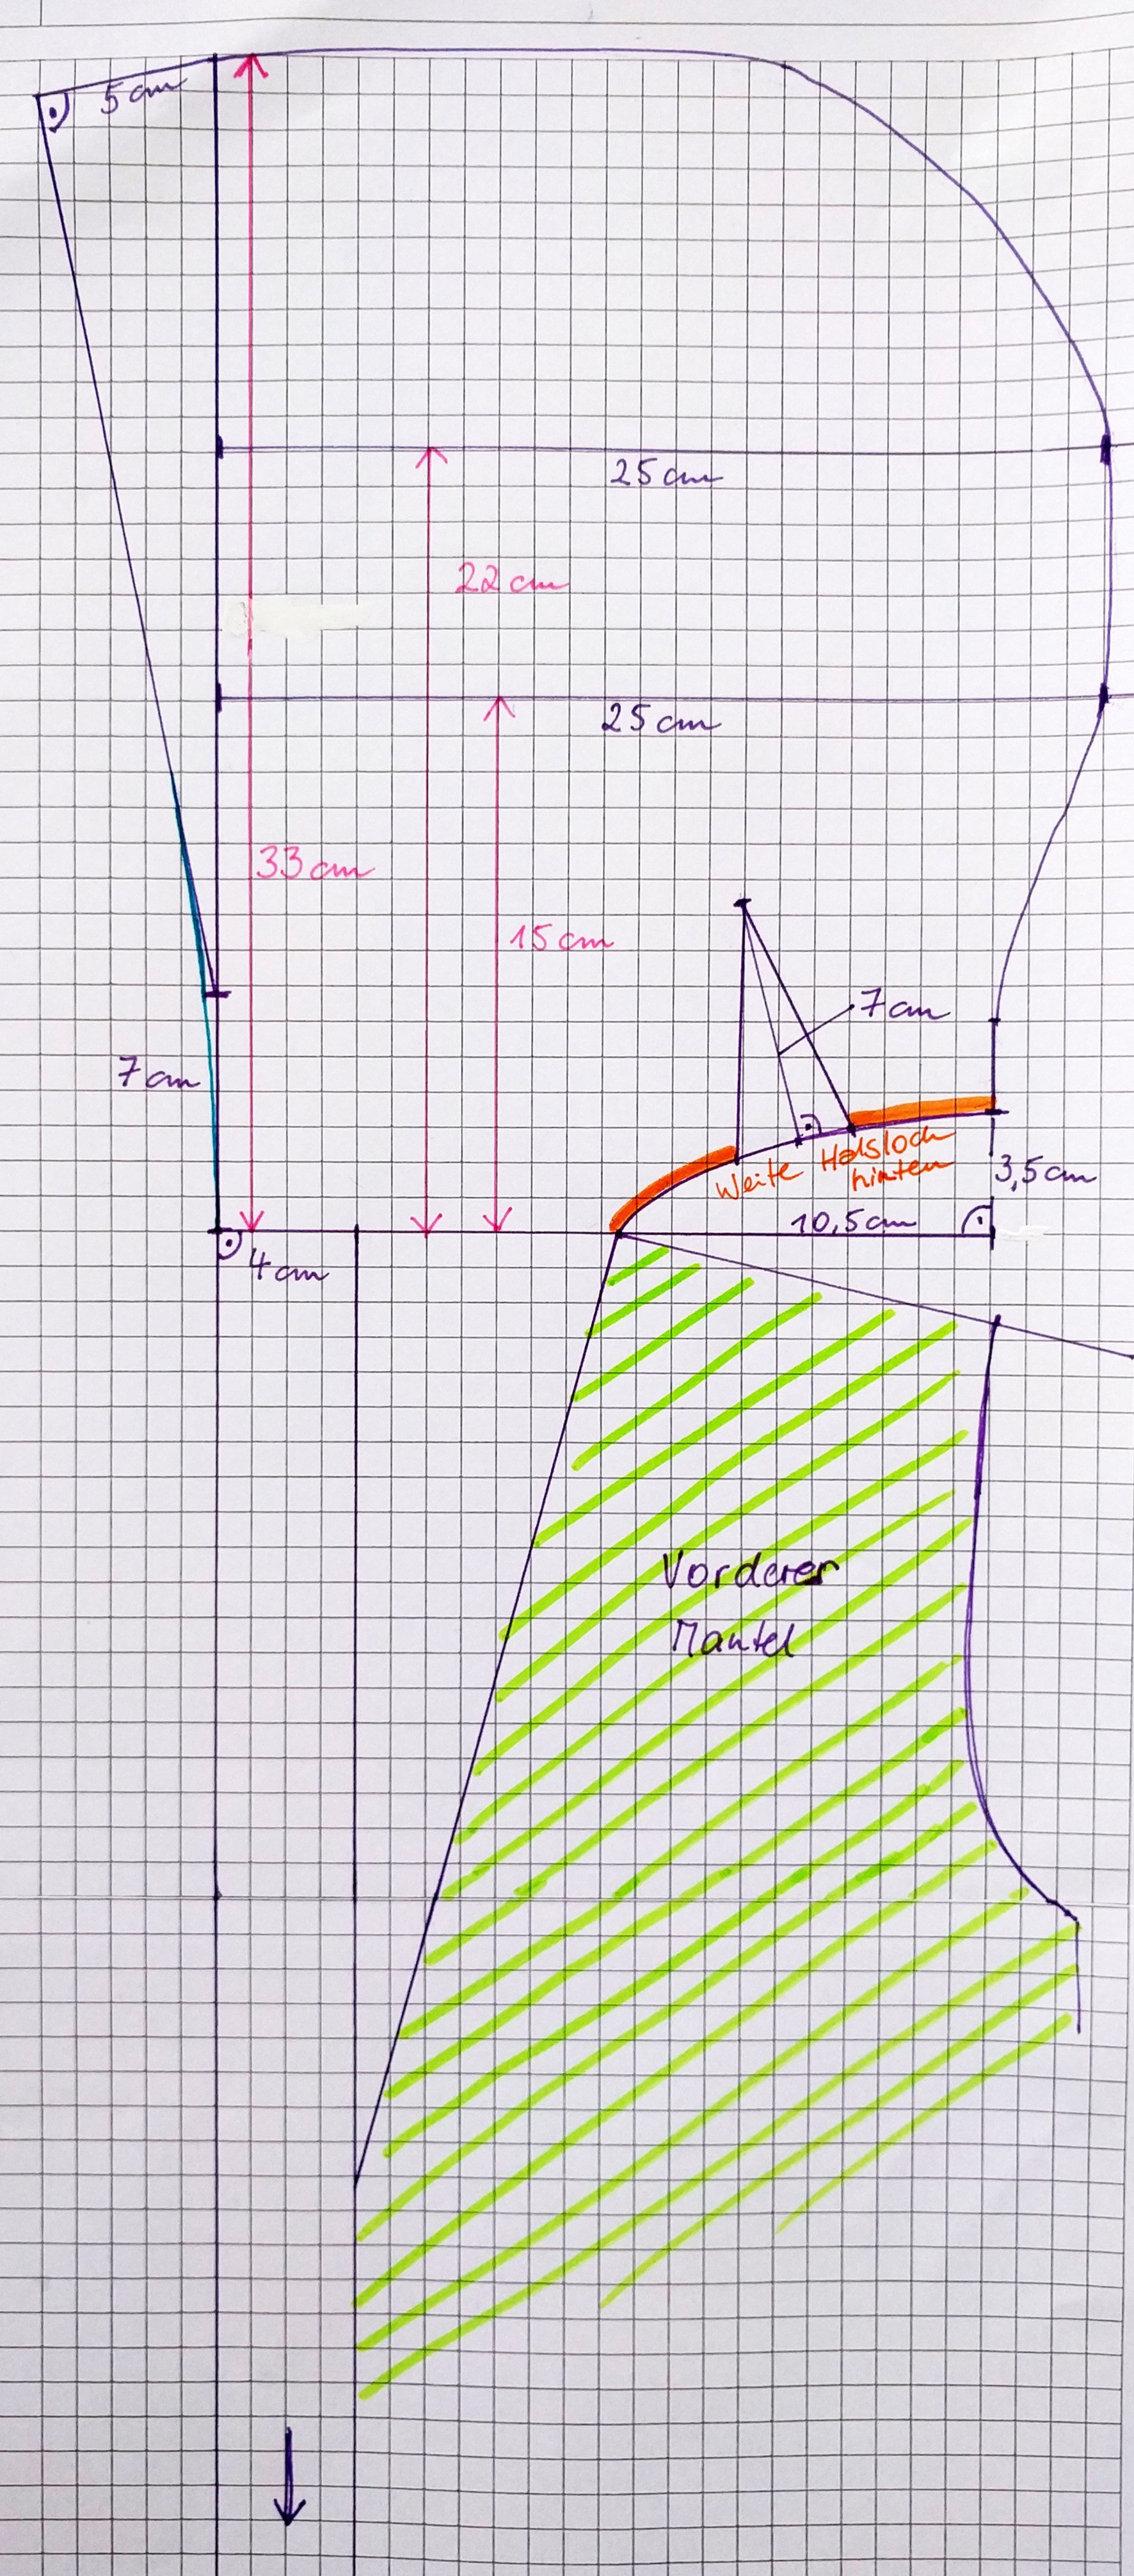 5cm
25cm
22cm
25cm
33cm
15cm
7cm
7cm
Weite Halsloch
hinten
3,5cm
10,5cm
4cm
Vorderer
Mantel